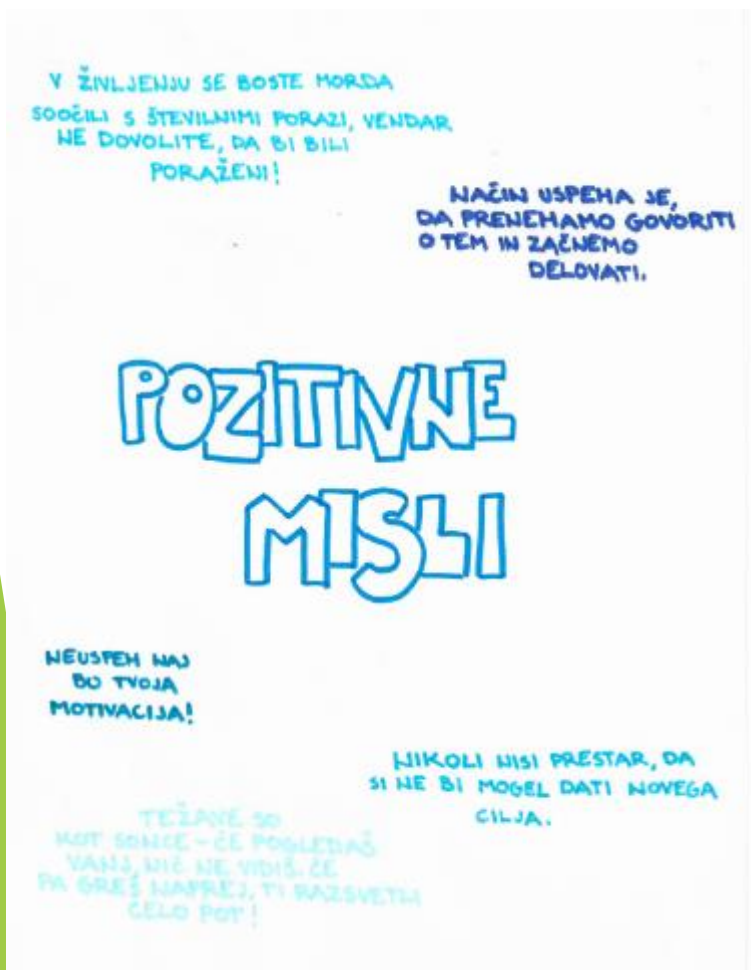 V ŽIVLJENJU SE BOSTE MORDA
SOOČILI S ŠTEVILNIMI PORAZI, VENDAR
NE DOVOLITE, DA BI BILI
PORAŽENI!
NAČIN USPEHA JE,
DA PRENEHAMO GOVORITI
O TEM IN ZAČNEMO
DELOVATI.
POZITIVNE
MISLI
NEUSPEH NAJ
BO TVOJA
MOTIVACIJA!
NIKOLI NISI PRESTAR, DA
SI NE BI MOGEL DATI NOVEGA
CILJA.
TEŽAVE SO
KOT SONCE - ČE POGLEDAŠ
VANJ, NIČ NE VIDIŠ. ČE
PA GREŠ NAPREJ, TI RAZSVETLI
CELO POT!